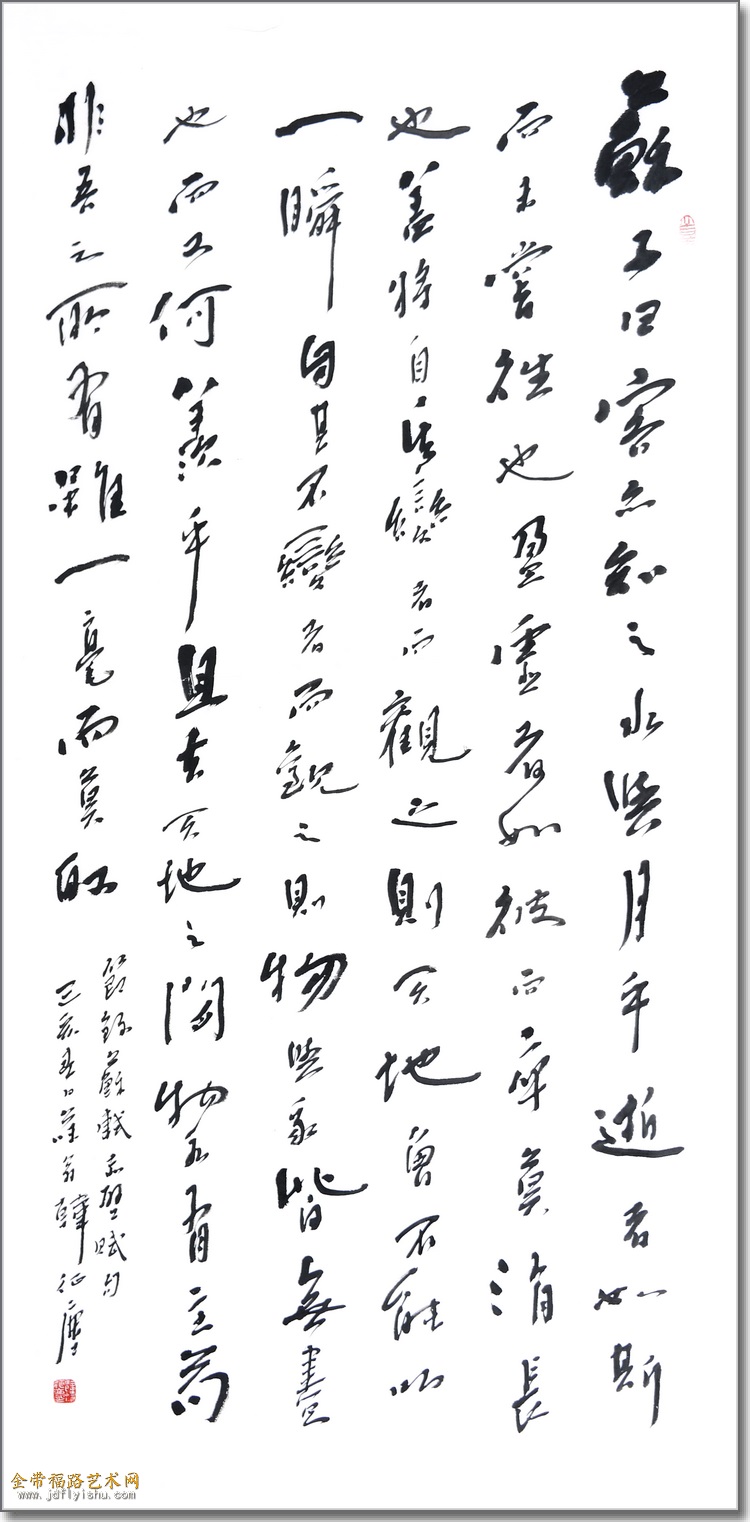 蘇子曰客亦知之水與月乎逝者如斯
而未嘗往也盈虛者如彼而卒莫消長
也蓋將自其變者而觀之則天地曾不能以
一瞬自其不變者而觀之則物與我皆無盡
也而又何羨乎且夫天地之間物各有主苟
非吾之所有雖一毫而莫取
節錄蘇軾赤壁賦句
己亥春日翁韓征塵
金带福路艺术网
www.jdflyishu.com